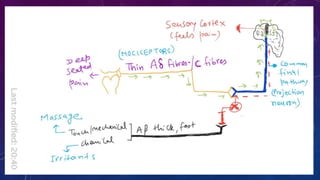 Sensory Cortex
(feels pain)
(NOCICEPTORS)
Deep
seated
pain
Thin Aδ fibres / C fibres
Common
final
pathway
(Projection
neuron)
Massage
Touch/mechanical
chemical
Aβ thick, fast
Irritants
Last modified: 20:40